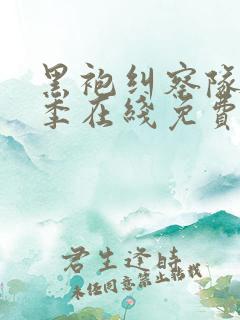 黑袍纠察队
季在线免费
君生逢时
未经同意禁止转载